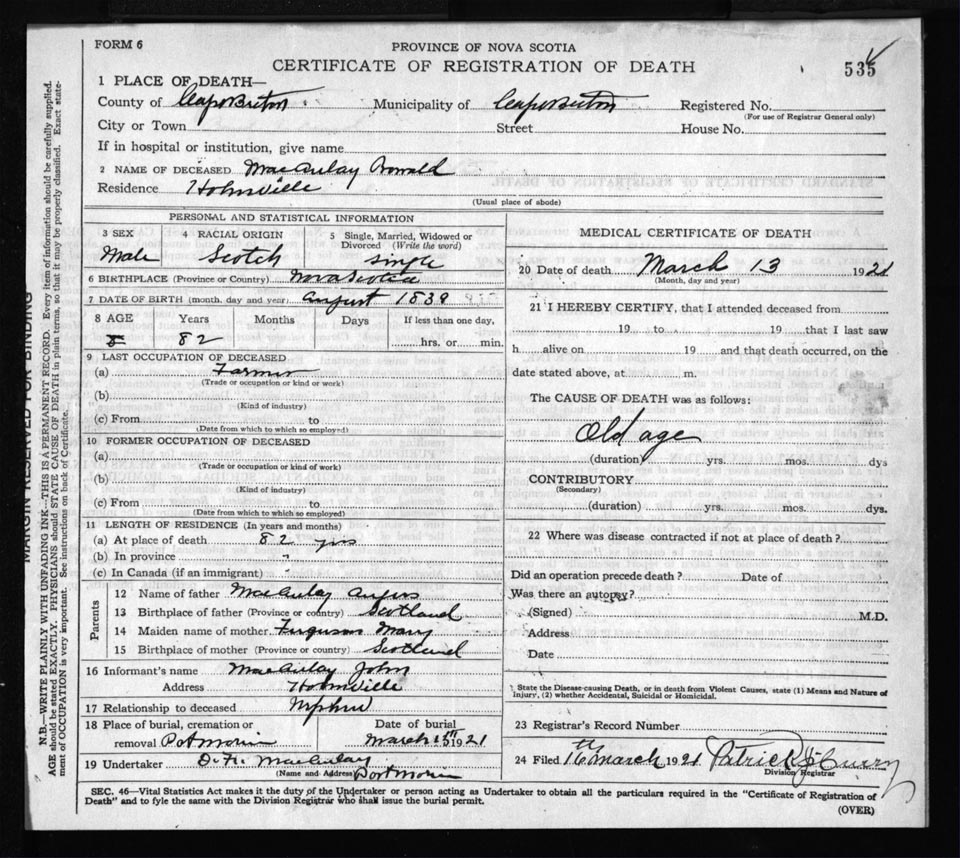 FORM 6
PROVINCE OF NOVA SCOTIA
CERTIFICATE OF REGISTRATION OF DEATH
535
1 PLACE OF DEATH—
County of Cape Breton Municipality of Cape Breton Registered No.
(For use of Registrar General only)
City or Town Street House No.
If in hospital or institution, give name
2 NAME OF DECEASED MacAulay Donald
Residence Hornville
(Usual place of abode)
PERSONAL AND STATISTICAL INFORMATION
3 SEX 4 RACIAL ORIGIN 5 Single, Married, Widowed or Divorced (Write the word)
Male Scotch Single
6 BIRTHPLACE (Province or Country) Nova Scotia
7 DATE OF BIRTH (month, day and year) August 1839
8 AGE Years Months Days If less than one day,
82 hrs. or min.
9 LAST OCCUPATION OF DECEASED
(a) Farmer
(Trade or occupation or kind or work)
(b)
(Kind of industry)
(c) From to
(Date from which to which so employed)
10 FORMER OCCUPATION OF DECEASED
(a)
(Trade or occupation or kind of work)
(b)
(Kind of industry)
(c) From to
(Date from which to which so employed)
11 LENGTH OF RESIDENCE (In years and months)
(a) At place of death 82 yrs
(b) In province "
(c) In Canada (if an immigrant) "
Parents
12 Name of father MacAulay Angus
13 Birthplace of father (Province or country) Scotland
14 Maiden name of mother Ferguson Mary
15 Birthplace of mother (Province or country) Scotland
16 Informant's name MacAulay John
Address Hornville
17 Relationship to deceased Nephew
18 Place of burial, cremation or Date of burial
removal Port Morien March 15th 1921
19 Undertaker D. N. MacAulay
(Name and Address) Port Morien
MEDICAL CERTIFICATE OF DEATH
20 Date of death March 13 1921
(Month, day and year)
21 I HEREBY CERTIFY, that I attended deceased from
19 to 19 that I last saw
h alive on 19 and that death occurred, on the
date stated above, at m.
The CAUSE OF DEATH was as follows:
Old age
(duration) yrs. mos. dys
CONTRIBUTORY
(Secondary)
(duration) yrs. mos. dys.
22 Where was disease contracted if not at place of death?
Did an operation precede death? Date of
Was there an autopsy?
(Signed) M.D.
Address
Date
State the Disease-causing Death, or in death from Violent Causes, state (1) Means and Nature of
Injury, (2) whether Accidental, Suicidal or Homicidal.
23 Registrar's Record Number
24 Filed 16th March 1921 Patrick Curry
Division Registrar
SEC. 46—Vital Statistics Act makes it the duty of the Undertaker or person acting as Undertaker to obtain all the particulars required in the "Certificate of Registration of
Death" and to fyle the same with the Division Registrar who shall issue the burial permit.
(OVER)
MARGIN RESERVED FOR BINDING
N.B.—WRITE PLAINLY WITH UNFADING INK—THIS IS A PERMANENT RECORD. Every item of information should be carefully supplied.
AGE should be stated EXACTLY. PHYSICIANS should STATE CAUSE OF DEATH in plain terms, so that it may be properly classified. Exact state-
ment of OCCUPATION is very important. See instructions on back of Certificate.